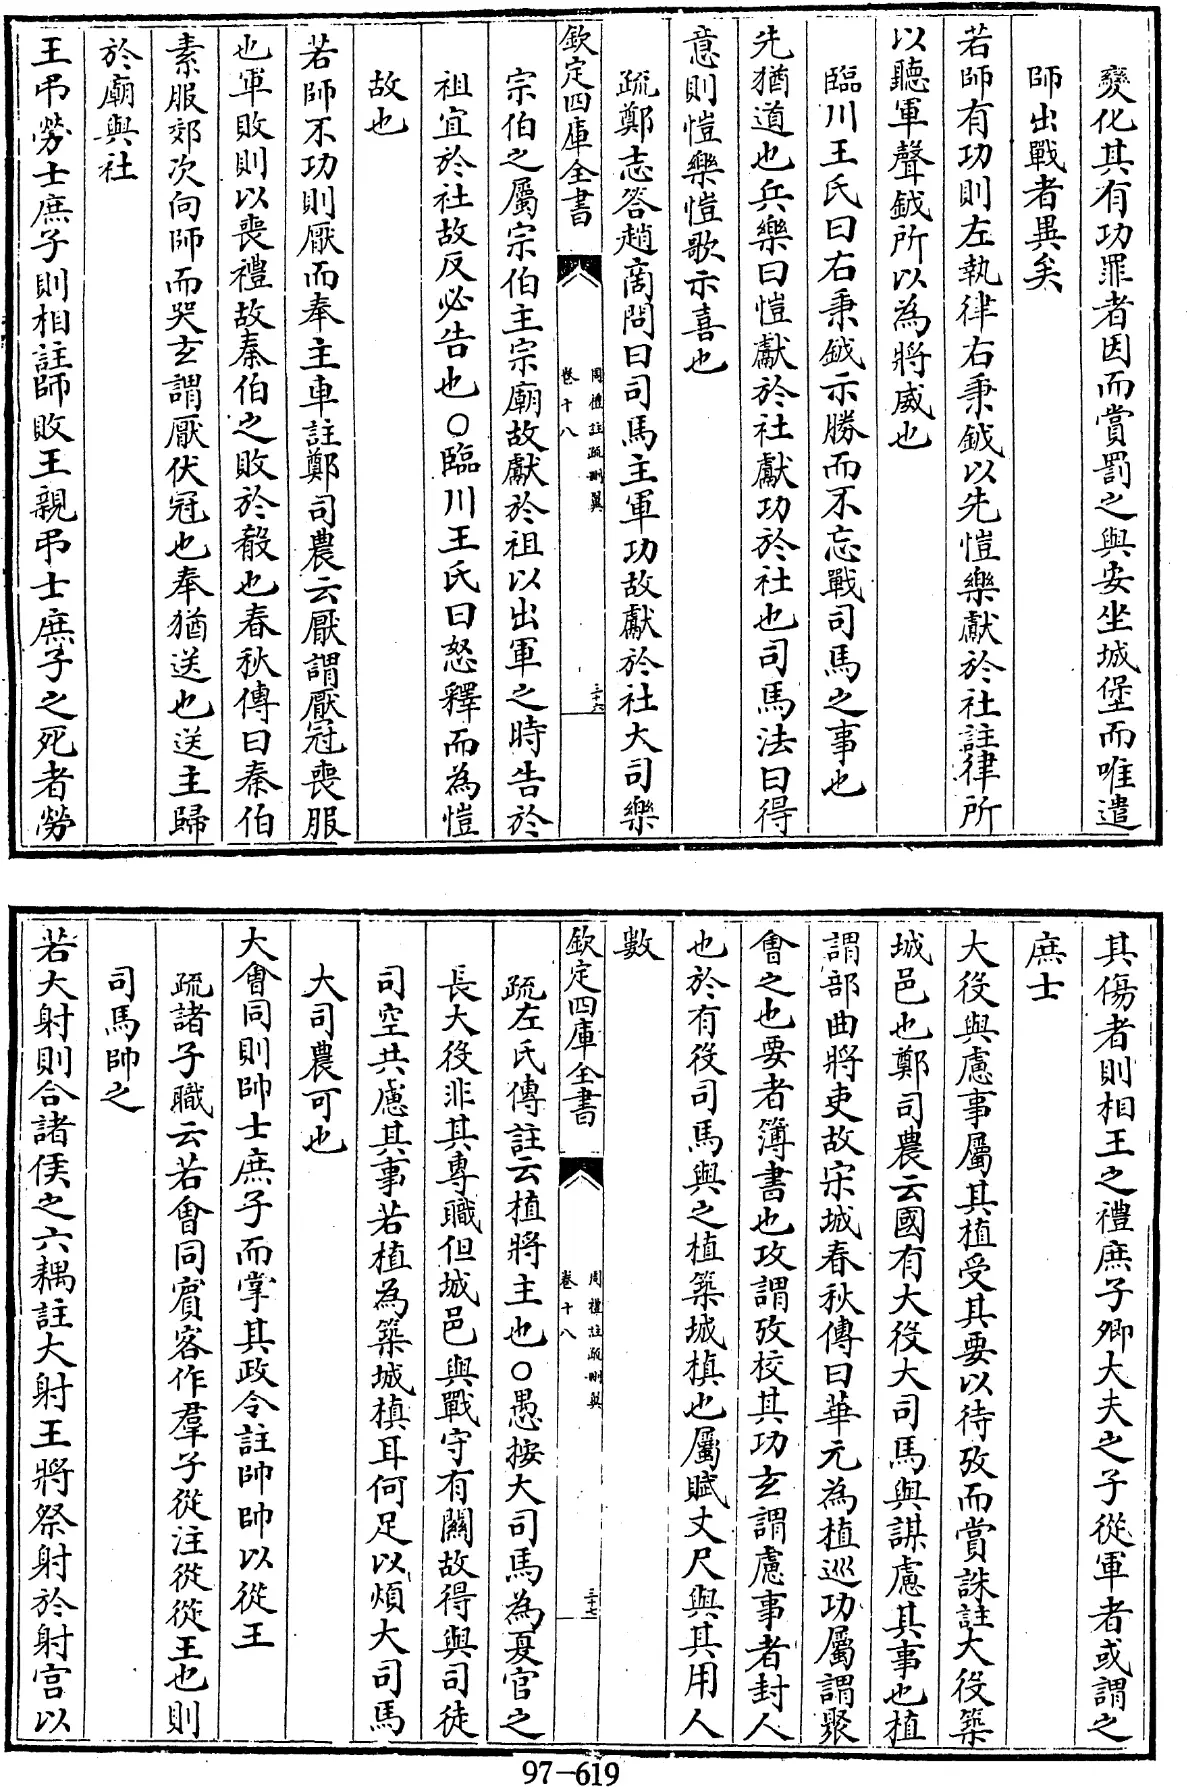 變化其有功罪者因而賞罰之與安坐城堡而唯遣
師出戰者異矣
若師有功則左執律右秉鉞以先愷樂獻於社註律所
以聽軍聲鉞所以為將威也
臨川王氏曰右秉鉞示勝而不忘戰司馬之事也
先猶道也兵樂曰愷獻於社獻功於社也司馬法曰得
意則愷樂愷歌示喜也
疏鄭志答趙商問曰司馬主軍功故獻於社大司樂
欽定四庫全書
周禮註疏刪翼
卷十八
三十六
宗伯之屬宗伯主宗廟故獻於祖以出軍之時告於
祖宜於社故反必告也○臨川王氏曰怒釋而為愷
故也
若師不功則厭而奉主車註鄭司農云厭謂厭冠喪服
也軍敗則以喪禮故秦伯之敗於殽也春秋傳曰秦伯
素服郊次向師而哭玄謂厭伏冠也奉猶送也送主歸
於廟與社
王弔勞士庶子則相註師敗王親弔士庶子之死者勞
其傷者則相王之禮庶子卿大夫之子從軍者或謂之
庶士
大役與慮事屬其植受其要以待攷而賞誅註大役築
城邑也鄭司農云國有大役大司馬與謀慮其事也植
謂部曲將吏故宋城春秋傳曰華元為植巡功屬謂聚
會之也要者簿書也攷謂攷校其功玄謂慮事者封人
也於有役司馬與之植築城楨也屬賦丈尺與其用人
數
欽定四庫全書
周禮註疏刪翼
卷十八
三十七
疏左氏傳註云植將主也○愚按大司馬為夏官之
長大役非其專職但城邑與戰守有關故得與司徒
司空共慮其事若植為築城楨耳何足以煩大司馬
大司農可也
大會同則帥士庶子而掌其政令註帥帥以從王
疏諸子職云若會同賓客作羣子從注從從王也則
司馬帥之
若大射則合諸侯之六耦註大射王將祭射於射宫以
97-619